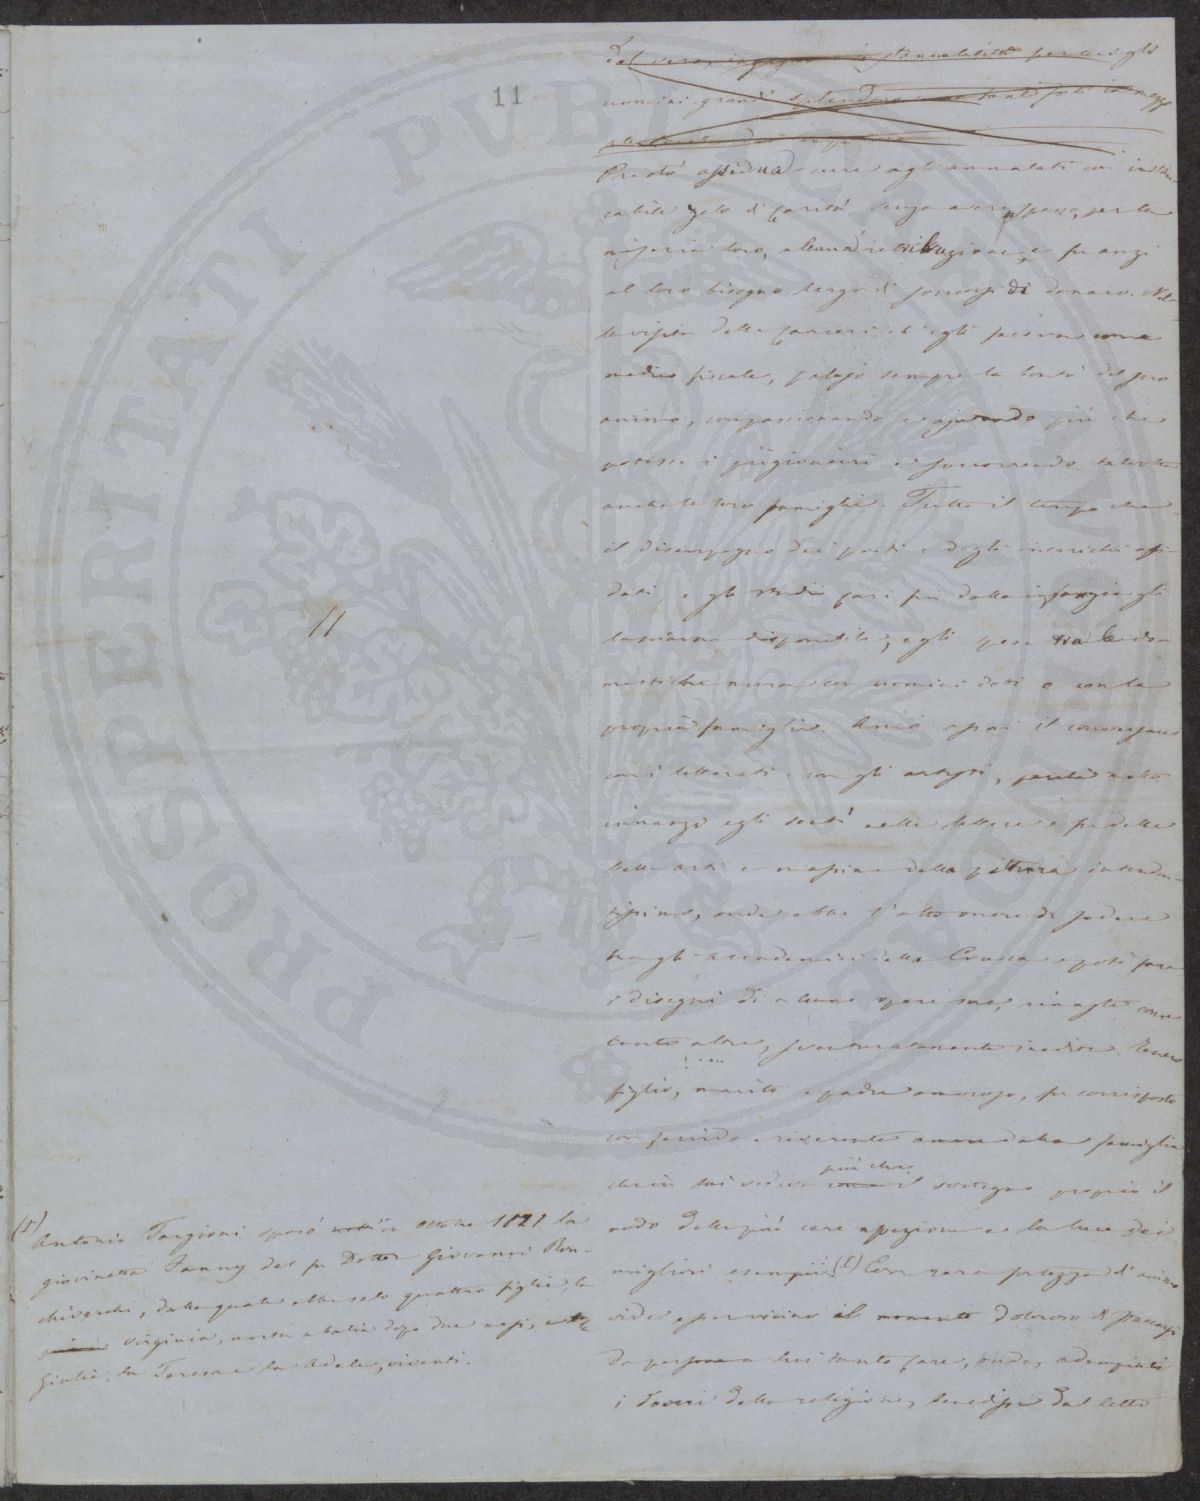 11
dal vero,
uomini grandi
Prestò assidua cure agli ammalati con instan-
cabile zelo di Carità senza avere spesso, per la
miseria loro, alcuna retribuzione, e fu anzi
al loro bisogno largo di soccorsi di danaro. Nel-
la visita delle Carceri ch'egli faceva come
medico fiscale, palesò sempre la bontà del suo
animo, compassionando e ajutando più che
potesse i prigionieri e soccorrendo talvolta
anche le loro famiglie. Tutto il tempo che
il disimpegno dei posti e degli incarichi affi-
dati, e gli studii cari fin dalla infanzia gli
lasciarono disponibile, egli passò tra le do-
mestiche mura con uomini dotti o con la
propria famiglia. Amò assai il conversare
coi letterati e con gli artisti, perchè molto
innanzi egli sentì nelle lettere e fu delle
belle arti e massime della pittura intenden-
tissimo, onde ebbe l'alto onore di sedere
tra gli Accademici della Crusca e potè fare
i disegni di alcune opere sue, rimaste come
tante altre, sventuratamente inedite. Tenero
figlio, marito e padre amoroso, fu corrisposto
con fervido e riverente amore dalla famiglia
che in lui vedeva più che il sostegno proprio il
nodo delle più care affezioni e la luce dei
migliori esempii (1) Con rara fortezza d'animo
vide approssimarsi il momento doloroso di staccarsi
da persone a lui tanto care, onde, adempiuti
i doveri della religione, benedisse dal letto
11
(1) Antonio Targioni sposò nell' Ottobre 1821 la
giovinetta Fanny del fu Dottor Giovanni Ron-
chivecchi, dalla quale ebbe solo quattro figlie, la
Virginia, morta a balia dopo due mesi, e la
Giulia, la Teresa e la Adele, viventi.
PROSPERITATI PUBLICAE AUGENDAE